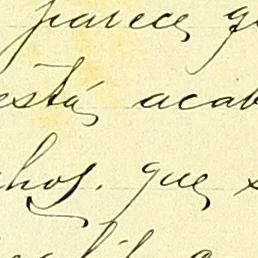 parece q
está acab
hos. que s